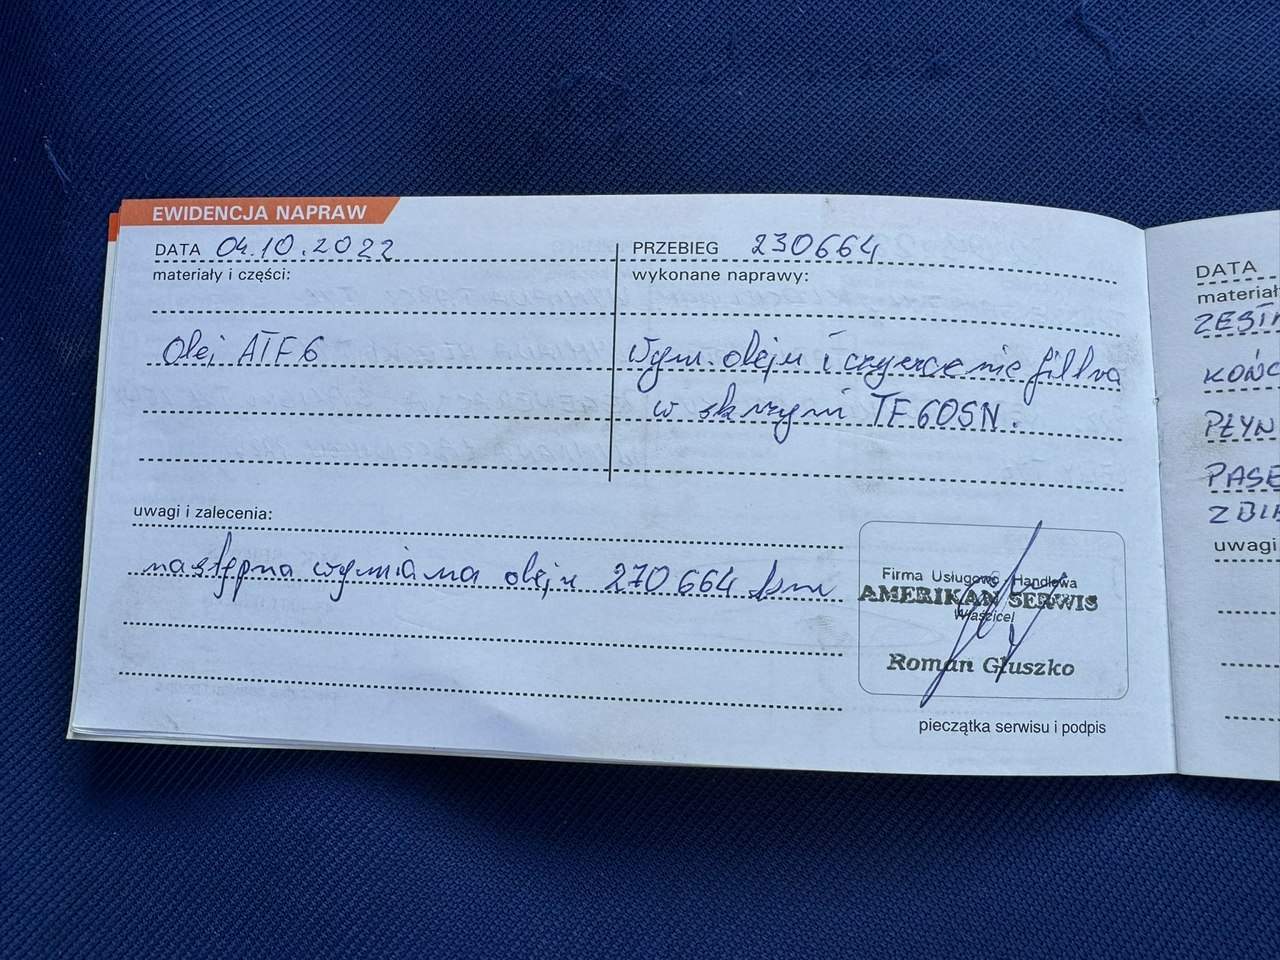 EWIDENCJA NAPRAW
DATA 04.10.2022
PRZEBIEG 230664
materiały i części:
wykonane naprawy:
Olej ATF6
Wym. oleju i czyszczenie filtra
w skrzyni TF60SN.
uwagi i zalecenia:
następna wymiana oleju 270 664 km
Firma Usługowo-Handlowa
AMERIKAN SERWIS
Właścicel
Roman Głuszko
pieczątka serwisu i podpis
DATA
materiał
KOŃC
PŁYN
PASE
uwagi